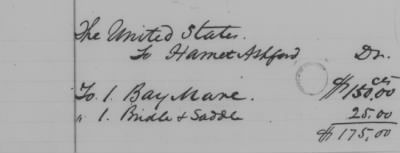 The United States.
To Harriet Ashford Dr.
cts
To 1. Bay Mare. $150.00
" 1. Bridle & Saddle 25.00
$175.00